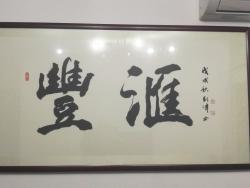 豐滙
戊戌秋